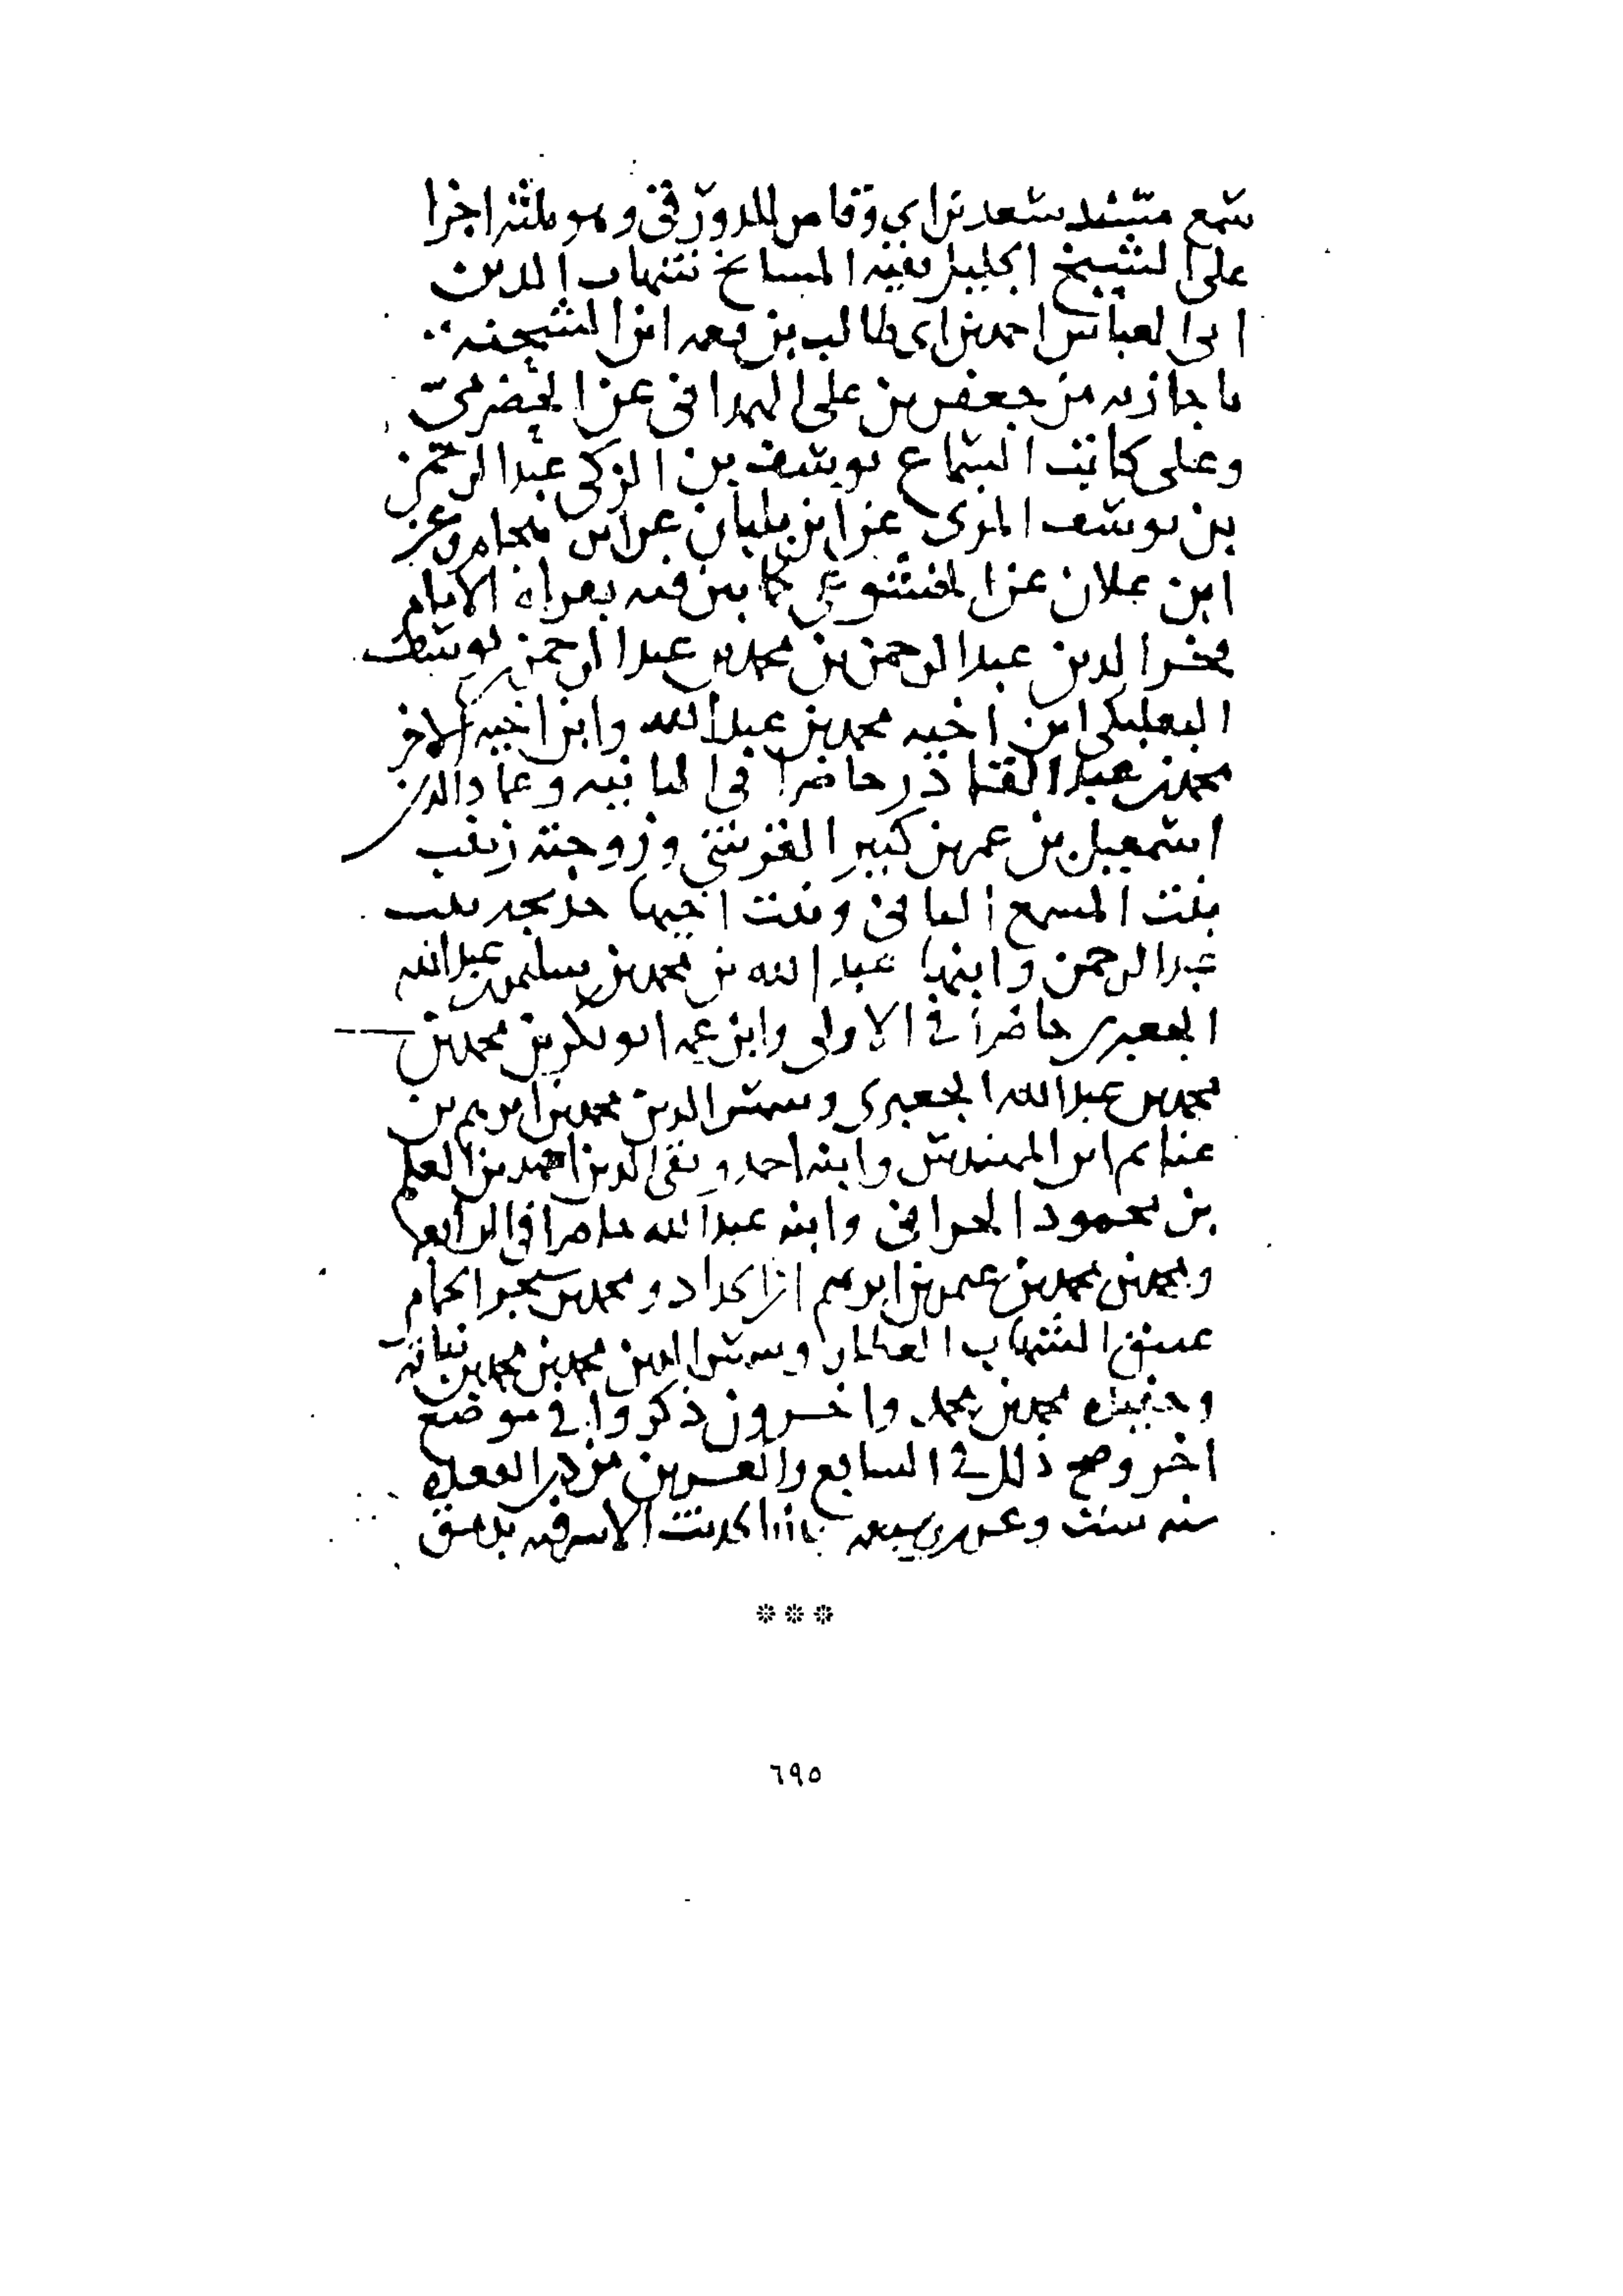 سمع مسند سعد بن ابي وقاص للدورقي وهو ثلثه اجزا
على الشيخ الجليل بقيه المسايخ شهاب الدين
ابى العباس احمد بن ابى طالب بن نعمه ابن الشحنه
باجازته من جعفر بن على الهمدانى عن الحضرمي
وعلى كاتب السماع يوسف بن الزكى عبد الرحمن
بن يوسف المزى عن ابن بلبان عن ابن وعن
ابن علان عن الخشوعى كا بين فيه بقراة الامام
فخر الدين عبد الرحمن بن محمد بن عبد الرحمن بن يوسف
البعلبكى ابن اخيه محمد بن عبد الله وابن اخيه الاخر
محمد بن عبد القادر حاضرا فى الثانيه وعماد الدين
اسمعيل بن عمر بن كثير القرشى وزوجته زينب
بنت المسمع الثانى وبنت اخيها خديجه بنت
عبد الرحمن وابنها عبد الله بن محمد بن سليمن بن عبد الله
الجعبرى حاضرا في الاولى وابن عمه ابو بكر بن محمد بن
محمد بن عبد الله الجعبرى وسمس الدين محمد بن ابرهيم بن
غنايم ابن المهندس وابنه احمد وتقى الدين احمد بن العلم
بن محمود الحرانى وابنه عبد الله حاضرا فى الرابعه
ومحمد بن محمد بن عمر بن ابرهيم ابن الحداد ومحمد بن سنجر الحمام
عتيق الشهاب العطار وسمس الدين محمد بن محمد بن نباته
وحفيده محمد بن محمد واخرون ذكروا في موضع
اخر وصح ذلك في السابع والعسرين من ذى القعده
سنه ست وعسرين وسبعمه بدار الحديث الاسرفيه بدمسق
***
٦٩٥